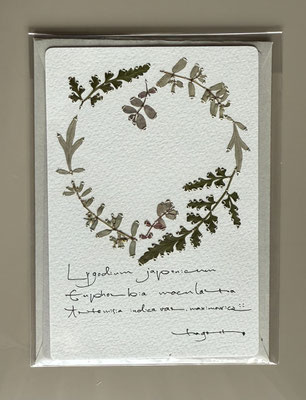 Lygodium japonicum
Euphorbia maculata
Artemisia indica var. maximowiczii